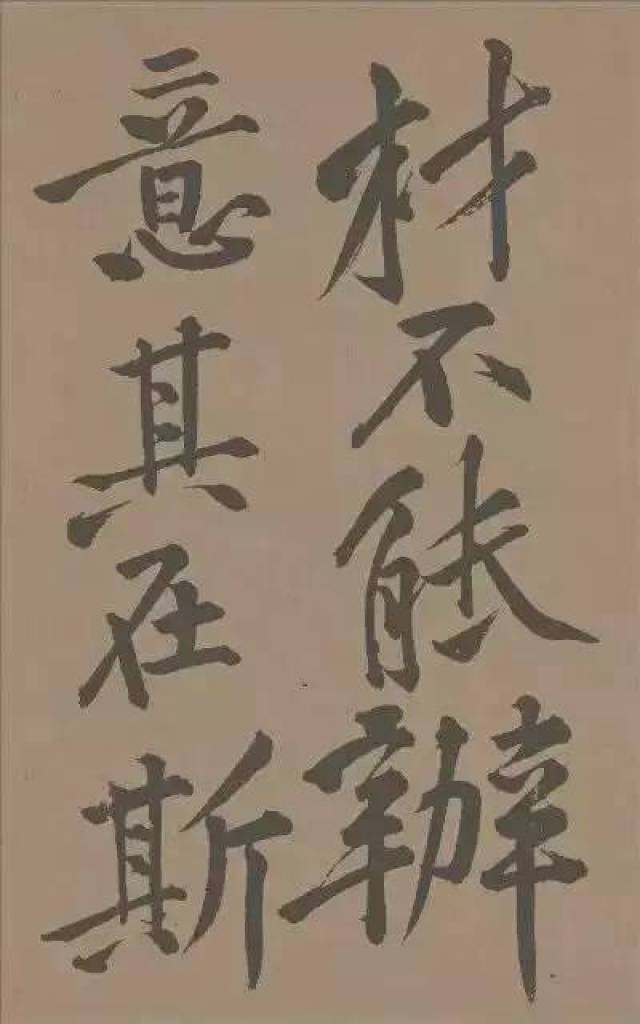 材不能辦
意其在斯